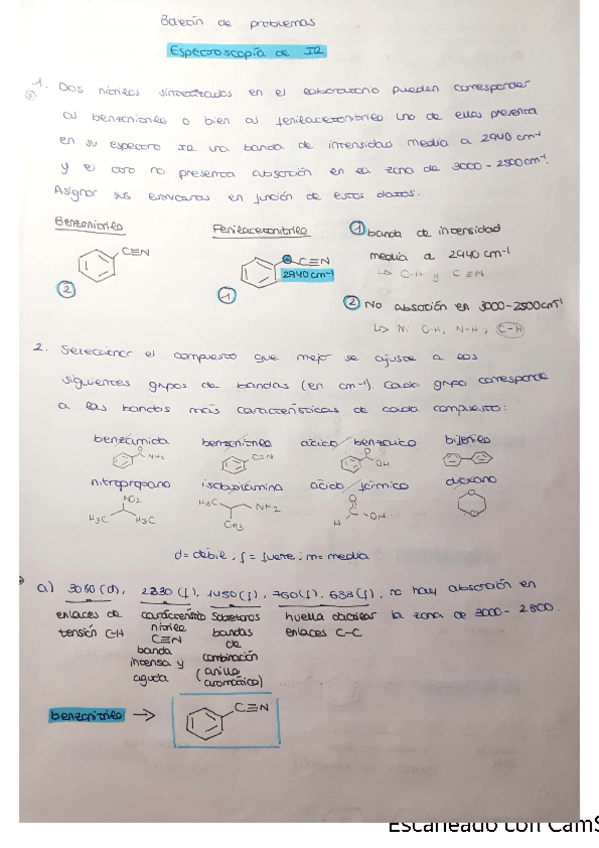 Boletín de problemas
Espectroscopía de IR
1. Dos nitrilos sintetizados en el laboratorio pueden corresponder
al benzonitrilo o bien al fenilacetonitrilo. Uno de ellos presenta
en su espectro IR una banda de intensidad media a 2940 cm-1
y el otro no presenta absorción en la zona de 3000-2500cm-1.
Asignar sus estructuras en función de estos datos.
Benzonitrilo
Fenilacetonitrilo
① banda de intensidad
media a 2940 cm-1
↳ C-H y C≡N
C≡N
C≡N
2940 cm-1
②
①
② No absorción en 3000-2500cm-1
↳ Ni O-H, N-H, C-H
2. Seleccionar el compuesto que mejor se ajuste a los
siguientes grupos de bandas (en cm-1). Cada grupo corresponde
a las bandas más características de cada compuesto:
benzamida benzonitrilo ácido benzoico bifenilo
O NH2 C≡N O OH
nitropropano isobutilamina ácido fórmico dioxano
NO2 H3C NH2 O O
H3C H3C CH3 H C-OH O
d=débil, f=fuerte; m=media
a) 3080(d), 2230(f), 1450(f), 760(f), 688(f), no hay absorción en
la zona de 3000-2800.
enlaces de
tensión C-H
característico
nitrilo
C≡N
banda
intensa y
aguda
Sobretonos
bandas
de
combinación
(anillo
aromático)
huella dactilar
enlaces C-C
benzonitrilo → C≡N
Escaneado con CamS